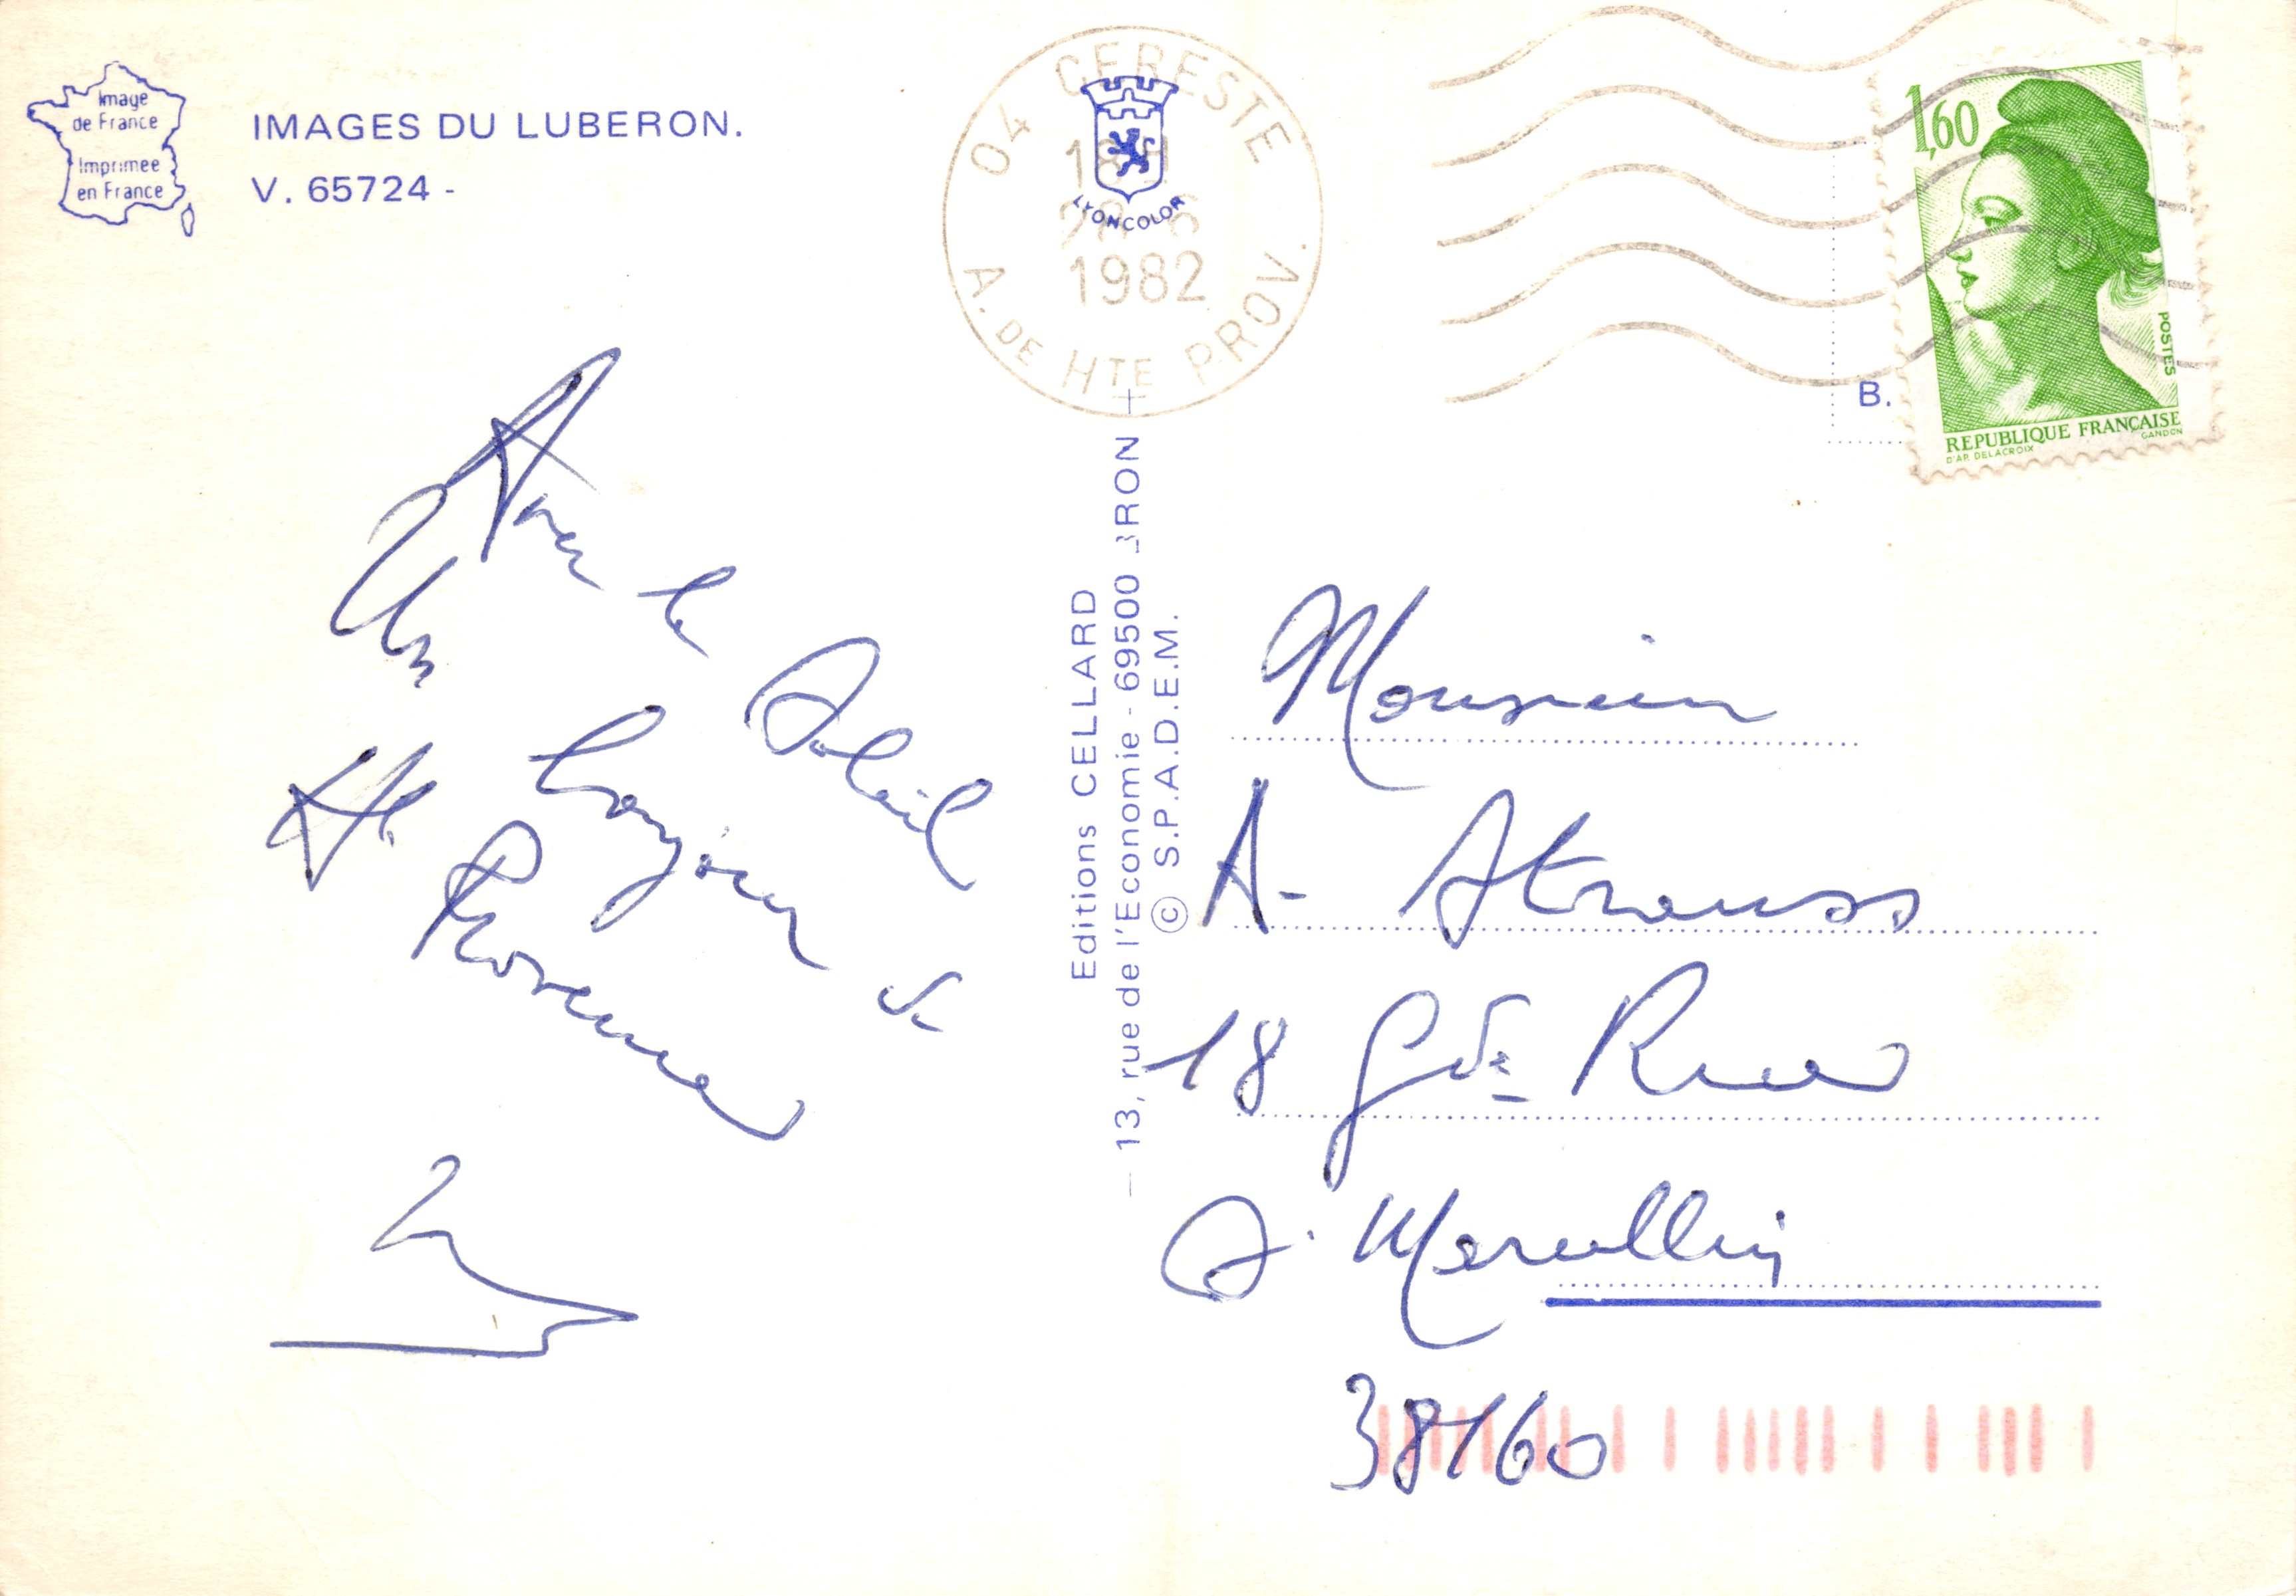 Image
de France
Imprimee
en France
IMAGES DU LUBERON.
V. 65724 -
04 CERESTE
1982
A. DE HTE PROV.
LYONCOLOR
1,60
POSTES
REPUBLIQUE FRANÇAISE
D'AP. DELACROIX
GANDON
B.
Avec le Soleil
Un bonjour de
Hte Provence
Editions CELLARD
13, rue de l'Economie - 69500 BRON
© S.P.A.D.E.M.
Monsieur
A. Strauss
18 Gde Rue
S. Marcellin
38160